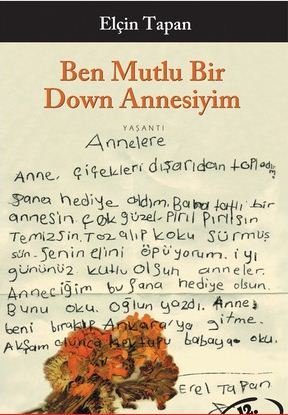 Elçin Tapan
Ben Mutlu Bir
Down Annesiyim
YAŞANTI
Annelere
Anne, çiçekleri dışarıdan topladım
Sana hediye aldım. Bana tatlı bir
annesin çok güzel piril pirilsin
Temizsin, Toz alıp koku sürmüş
sün. Senin elini öpüyorum. iyi
gününüz kutlu olsun anneler.
Anneciğim bu sana hediye olsun.
Bunu oku. Oğlun yazdı. Anne,
beni bırakıp Ankara'ya gitme.
Akşam olunca mektubu babayga oku.
Erel Tapan
12.